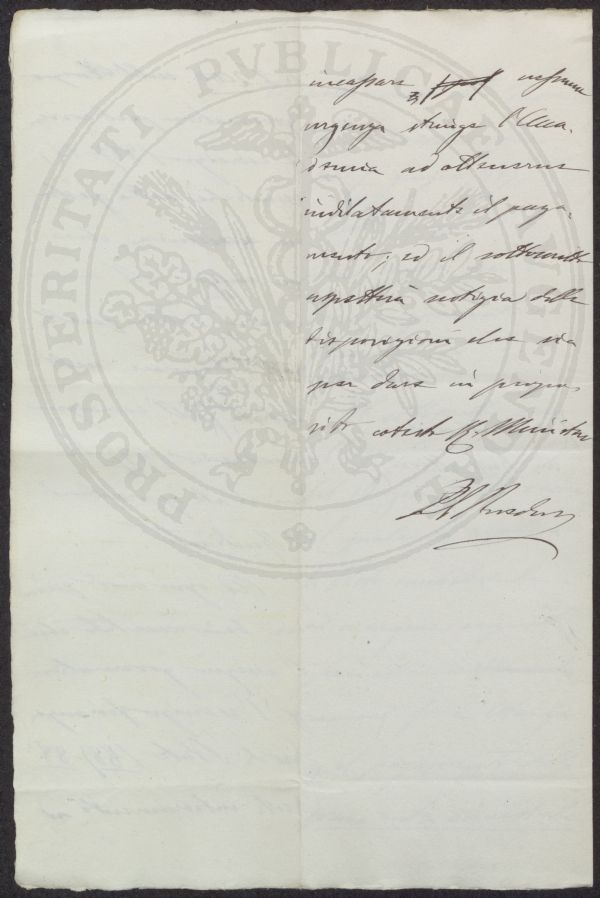 PROSPERITATI PVBLICAE AVGENDAE
incassare, nessuna
urgenza stringe l'Acca-
demia ad ottenerne
indilatamente il paga-
mento; ed il sottoscritto
aspetterà notizia delle
disposizioni che sia
per dare in propo-
sito cotesto R. Ministero